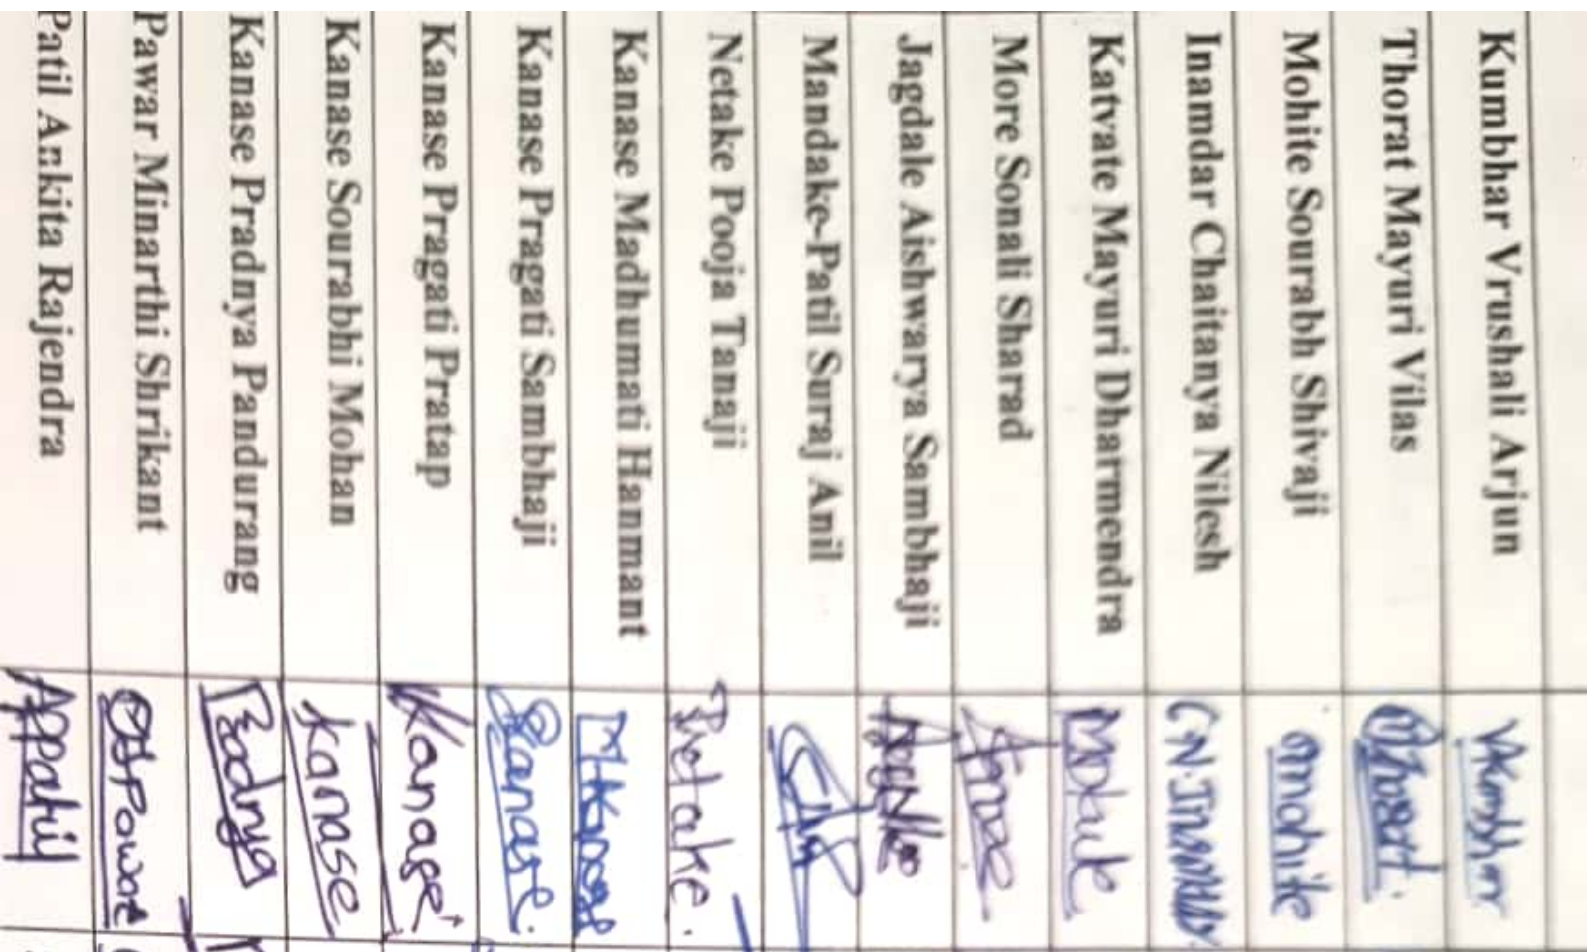 Kumbhar Vrushali Arjun Kumbhar
Thorat Mayuri Vilas Thorat.
Mohite Sourabh Shivaji mohite
Inamdar Chaitanya Nilesh C.N.Inamdar
Katvate Mayuri Dharmendra
More Sonali Sharad
Jagdale Aishwarya Sambhaji
Mandake-Patil Suraj Anil
Netake Pooja Tanaji Petake.
Kanase Madhumati Hanmant MHKanase
Kanase Pragati Sambhaji Kanase.
Kanase Pragati Pratap Kanase
Kanase Sourabhi Mohan Kanase
Kanase Pradnya Pandurang Padnya
Pawar Minarthi Shrikant Pawar
Patil Ankita Rajendra ARpatil